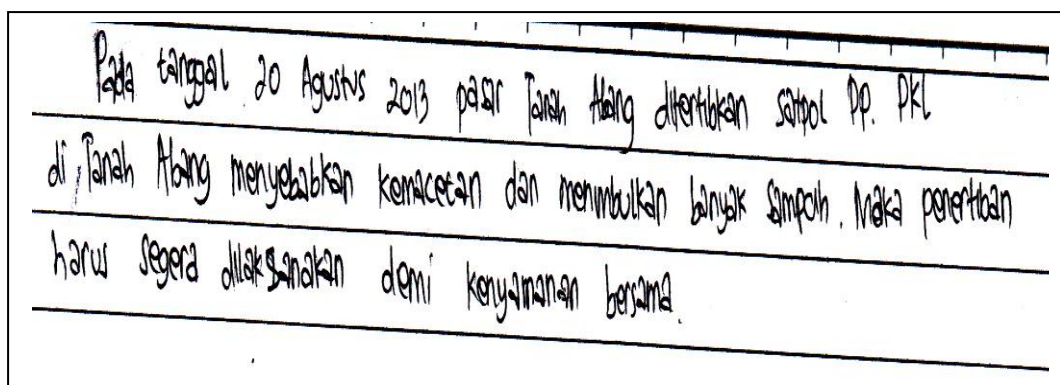 Pada tanggal 20 Agustus 2013 pasar Tanah Abang ditertibkan satpol PP. PKL
di Tanah Abang menyebabkan kemacetan dan menimbulkan banyak sampah. Maka penertiban
harus segera dilaksanakan demi kenyamanan bersama.